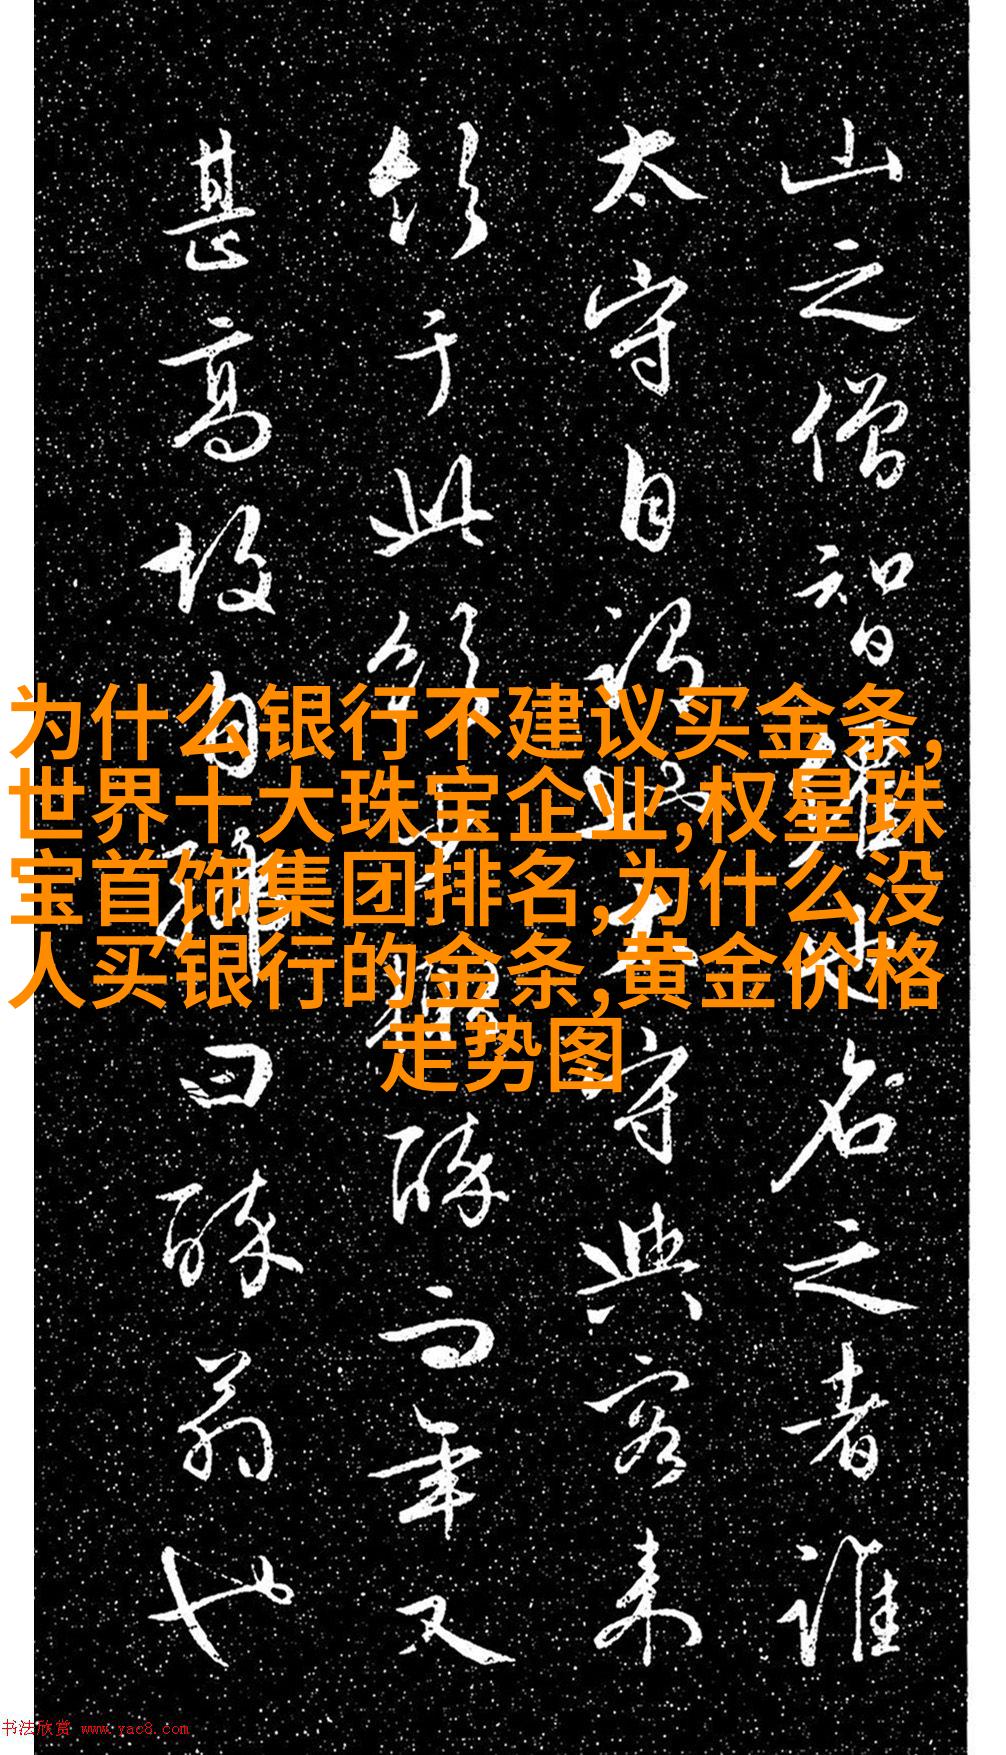 为什么银行不建议买金条,
世界十大珠宝企业,权星珠
宝首饰集团排名,为什么没
人买银行的金条,黄金价格
走势图
山之僧智也名之者誰
太守自謂太守與客来
飲于此飲輒醉而年又
甚高故自曰醉翁也
书法欣赏 www.yac8.com